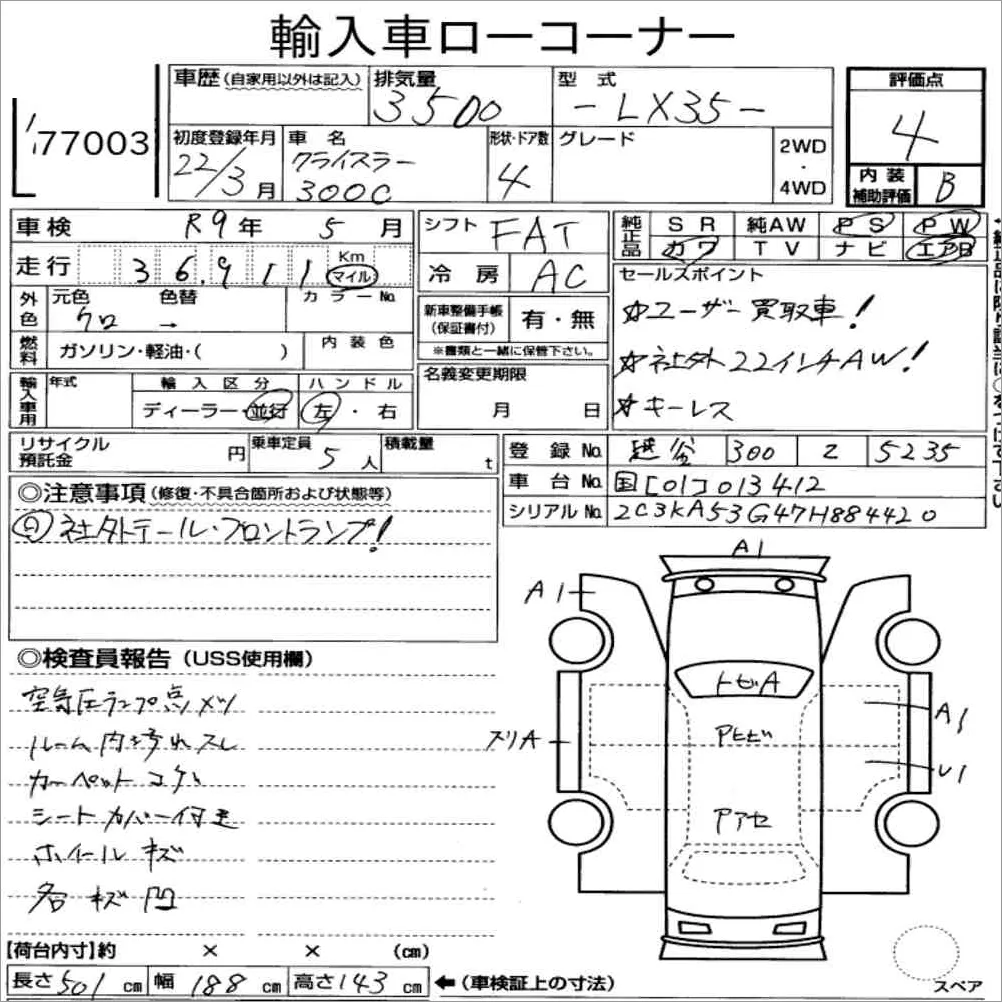 輸入車ローコーナー
77003
車歴(自家用以外は記入)
排気量 3500
型式 -LX35-
評価点 4
初度登録年月 22/3月
車名 クライスラー 300C
形状・ドア数 4
グレード
2WD・4WD
内装補助評価 B
車検 R9年 5月
シフト FAT
純正品 SR 純AW PS PW
カワ TV ナビ エアB
走行 36,911 Km マイル
冷房 AC
セールスポイント
☆ユーザー買取車!
☆社外22インチAW!
☆キーレス
外色 元色 クロ 色替 → カラーNo.
新車整備手帳(保証書付) 有・無
※書類と一緒に保管下さい。
燃料 ガソリン・軽油・( ) 内装色
名義変更期限 月 日
輸入車用 年式 輸入区分 ディーラー・並行 ハンドル 左・右
リサイクル預託金 円 乗車定員 5人 積載量 t
登録No. 越谷 300 Z 5235
車台No. 国[01]013412
シリアルNo. 2C3KA53G47H884420
◎注意事項(修復・不具合箇所および状態等)
社外テール・フロントランプ!
◎検査員報告(USS使用欄)
空気圧ランプ点メツ
ルーム内汚れスレ
カーペットコゲ
シートカバー付き
ホイールキズ
各キズ凹
A1
A1
トビA
A1
スリA
アヒビ
U1
アアセ
【荷台内寸】約 × × (cm)
長さ501cm 幅188cm 高さ143cm ←(車検証上の寸法)
スペア